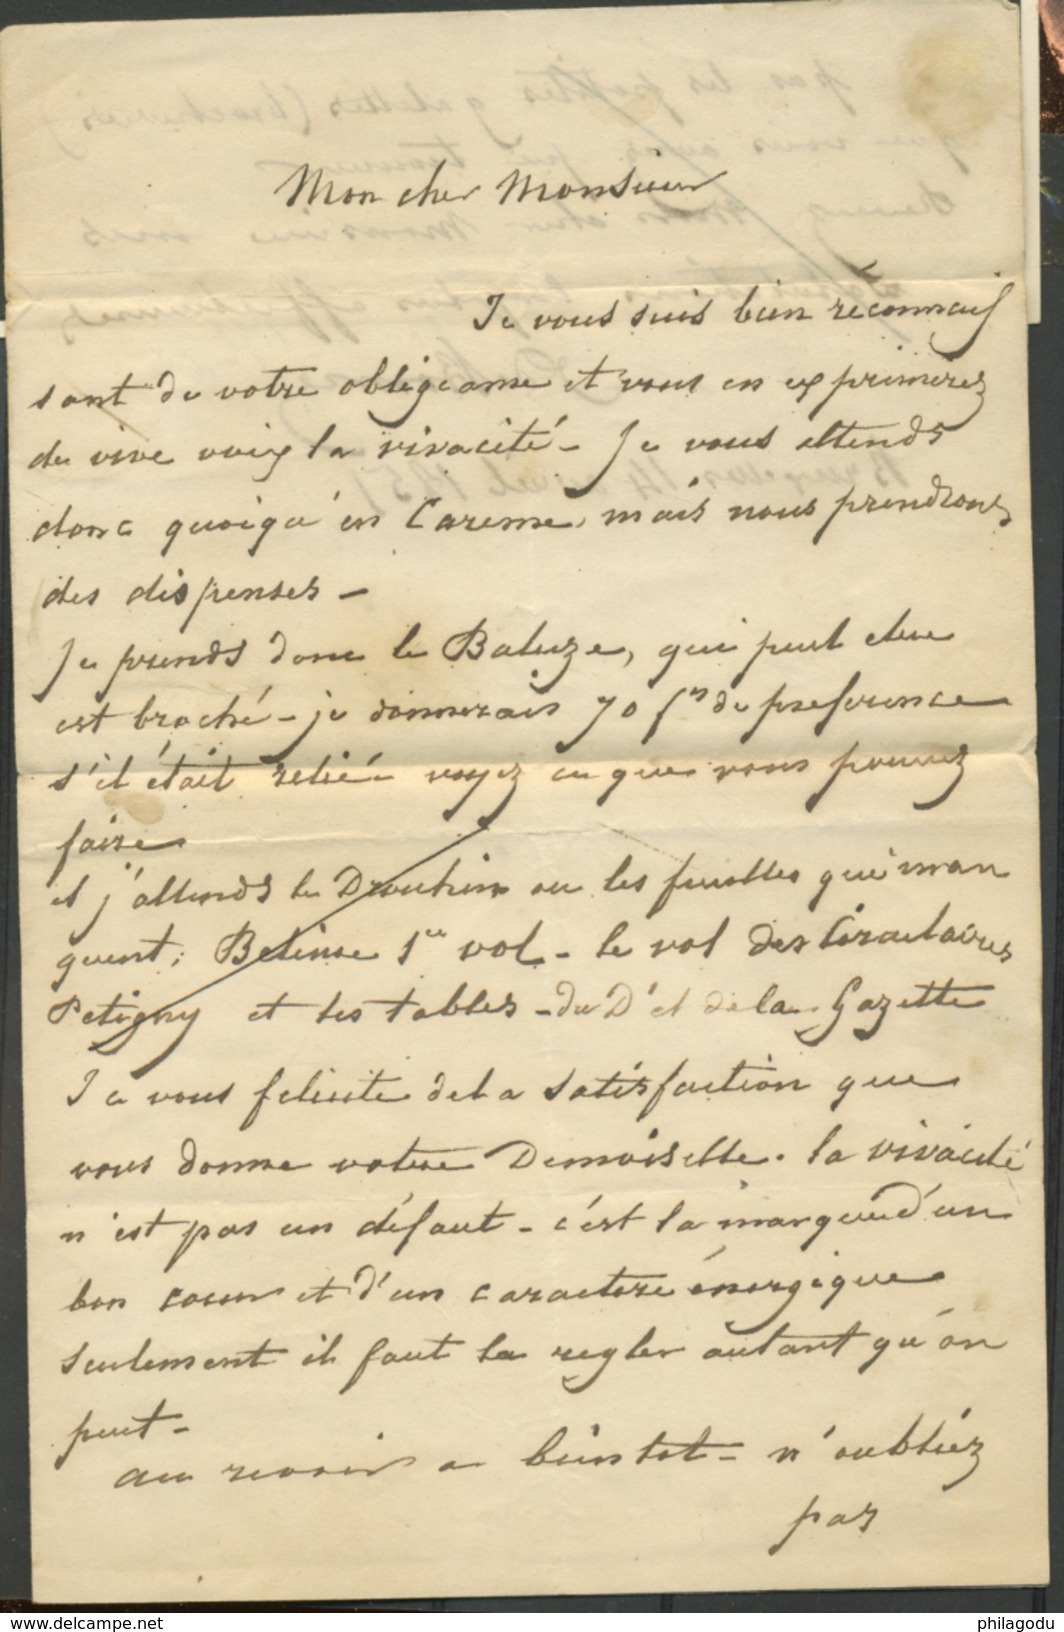 Mon cher Monsieur
Je vous suis bien réconnais
sant de votre obligeanse et vous en exprimerez
de vive voix la vivacité - Je vous attends
donc quoiqu'en Careme, mais nous prendrons
des dispenses -
Je prends donc le Baluze, qui peut etre
est broché - je donnerais 70 frs de preference
s'il était relié - voyez ce que vous pouvez
faire
et j'attends le Drouhin ou les feuilles qui man
quent; 1er vol - le vol des
Petigny et les tables - du D' et de la Gazette
Je vous felicite de la satisfaction que
vous donne votre Demoiselle. la vivacité
n'est pas un défaut - c'est la marque d'un
bon coeur et d'un caractere énergique
seulement il faut la regler autant qu'on
peut -
au revoir a bientot - n'oubliez
pas
delcampe.net
philagodu